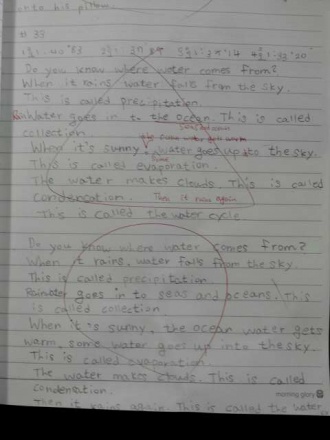 into his pillow.
# 33
Do you know where water comes from?
When it rains water falls from the sky.
This is called precipitation.
Rain Water goes in to the ocean. This is called
seas and oceans
collection.
the ocean water gets warm
When it's sunny, water goes up to the sky.
Some
This is called evaporation.
The water makes clouds. This is called
Condensation. Then it rains again
This is called the water cycle
Do you know where water comes from?
When it rains, water falls from the sky
This is called precipitation.
Rainwater goes in to seas and oceans. This
is called collection
When it's sunny, the ocean water gets
warm, some water goes up into the sky.
This is called evaporation.
The water makes clouds. This is called
condensation.
Then it rains again. This is called the water
morning glory